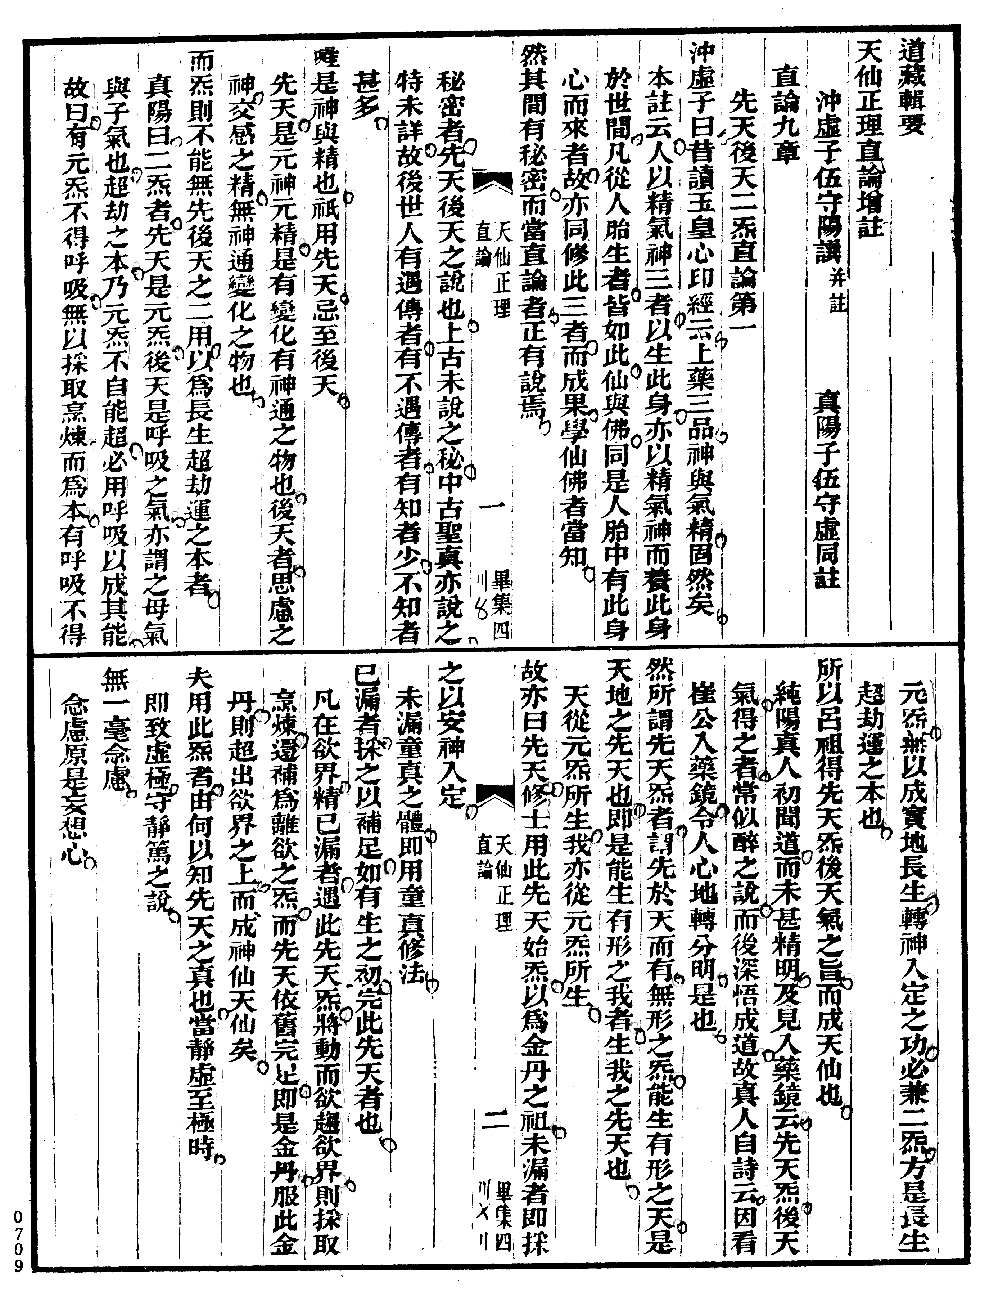 道藏輯要
天仙正理直論增註
沖虛子伍守陽譔並註　真陽子伍守虛同註
直論九章
先天後天二炁直論第一
沖虛子曰昔讀玉皇心印經云上藥三品神與氣精固然矣
本註云人以精氣神三者以生此身亦以精氣神而養此身
於世間凡從人胎生者皆如此仙與佛同是人胎中有此身
心而來者故亦同修此三者而成果學仙佛者當知
然其間有秘密而當直論者正有說焉
天仙正理
直論
一
畢集四
秘密者先天後天之說也上古未說之秘中古聖真亦說之
特未詳故後世人有遇傳者有不遇傳者有知者少不知者
甚多
唯是神與精也祇用先天忌至後天
先天是元神元精是有變化有神通之物也後天者思慮之
神交感之精無神通變化之物也
而炁則不能無先後天之二用以爲長生超劫運之本者
真陽曰二炁者先天是元炁後天是呼吸之氣亦謂之母氣
與子氣也超劫之本乃元炁不自能超必用呼吸以成其能
故曰有元炁不得呼吸無以採取烹煉而爲本有呼吸不得
元炁無以成實地長生轉神入定之功必兼二炁方是長生
超劫運之本也
所以呂祖得先天炁後天氣之旨而成天仙也
純陽真人初聞道而未甚精明及見入藥鏡云先天炁後天
氣得之者常似醉之說而後深悟成道故真人自詩云因看
崔公入藥鏡令人心地轉分明是也
然所謂先天炁者謂先於天而有無形之炁能生有形之天是
天地之先天也即是能生有形之我者生我之先天也
天從元炁所生我亦從元炁所生
故亦曰先天修士用此先天始炁以爲金丹之祖未漏者即採
天仙正理
直論
二
畢集四
之以安神入定
未漏童真之體即用童真修法
已漏者採之以補足如有生之初完此先天者也
凡在欲界精已漏者遇此先天炁將動而欲趨欲界則採取
烹煉還補爲離欲之炁而先天依舊完足即是金丹服此金
丹則超出欲界之上而成神仙天仙矣
夫用此炁者由何以知先天之真也當靜虛至極時
即致虛極守靜篤之說
無一毫念慮
念慮原是妄想心
0709